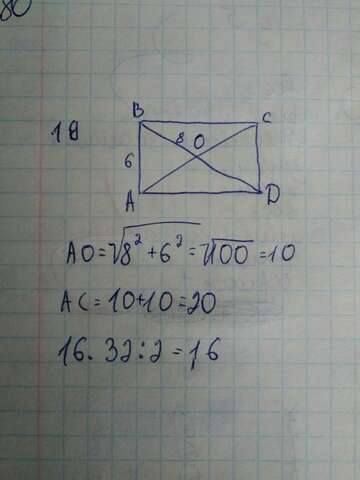 80
18
B
C
8
O
6
A
D
AO=√8²+6²=√100=10
AC=10+10=20
16. 32:2=16